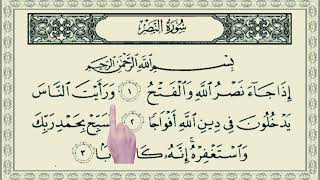 سُورَةُ النَّصْرِ
بِسْمِ اللَّهِ الرَّحْمَٰنِ الرَّحِيمِ
إِذَا جَاءَ نَصْرُ اللَّهِ وَالْفَتْحُ ١ وَرَأَيْتَ النَّاسَ
يَدْخُلُونَ فِي دِينِ اللَّهِ أَفْوَاجًا ٢ بِحَمْدِ رَبِّكَ
وَاسْتَغْفِرْهُ إِنَّهُ ٣